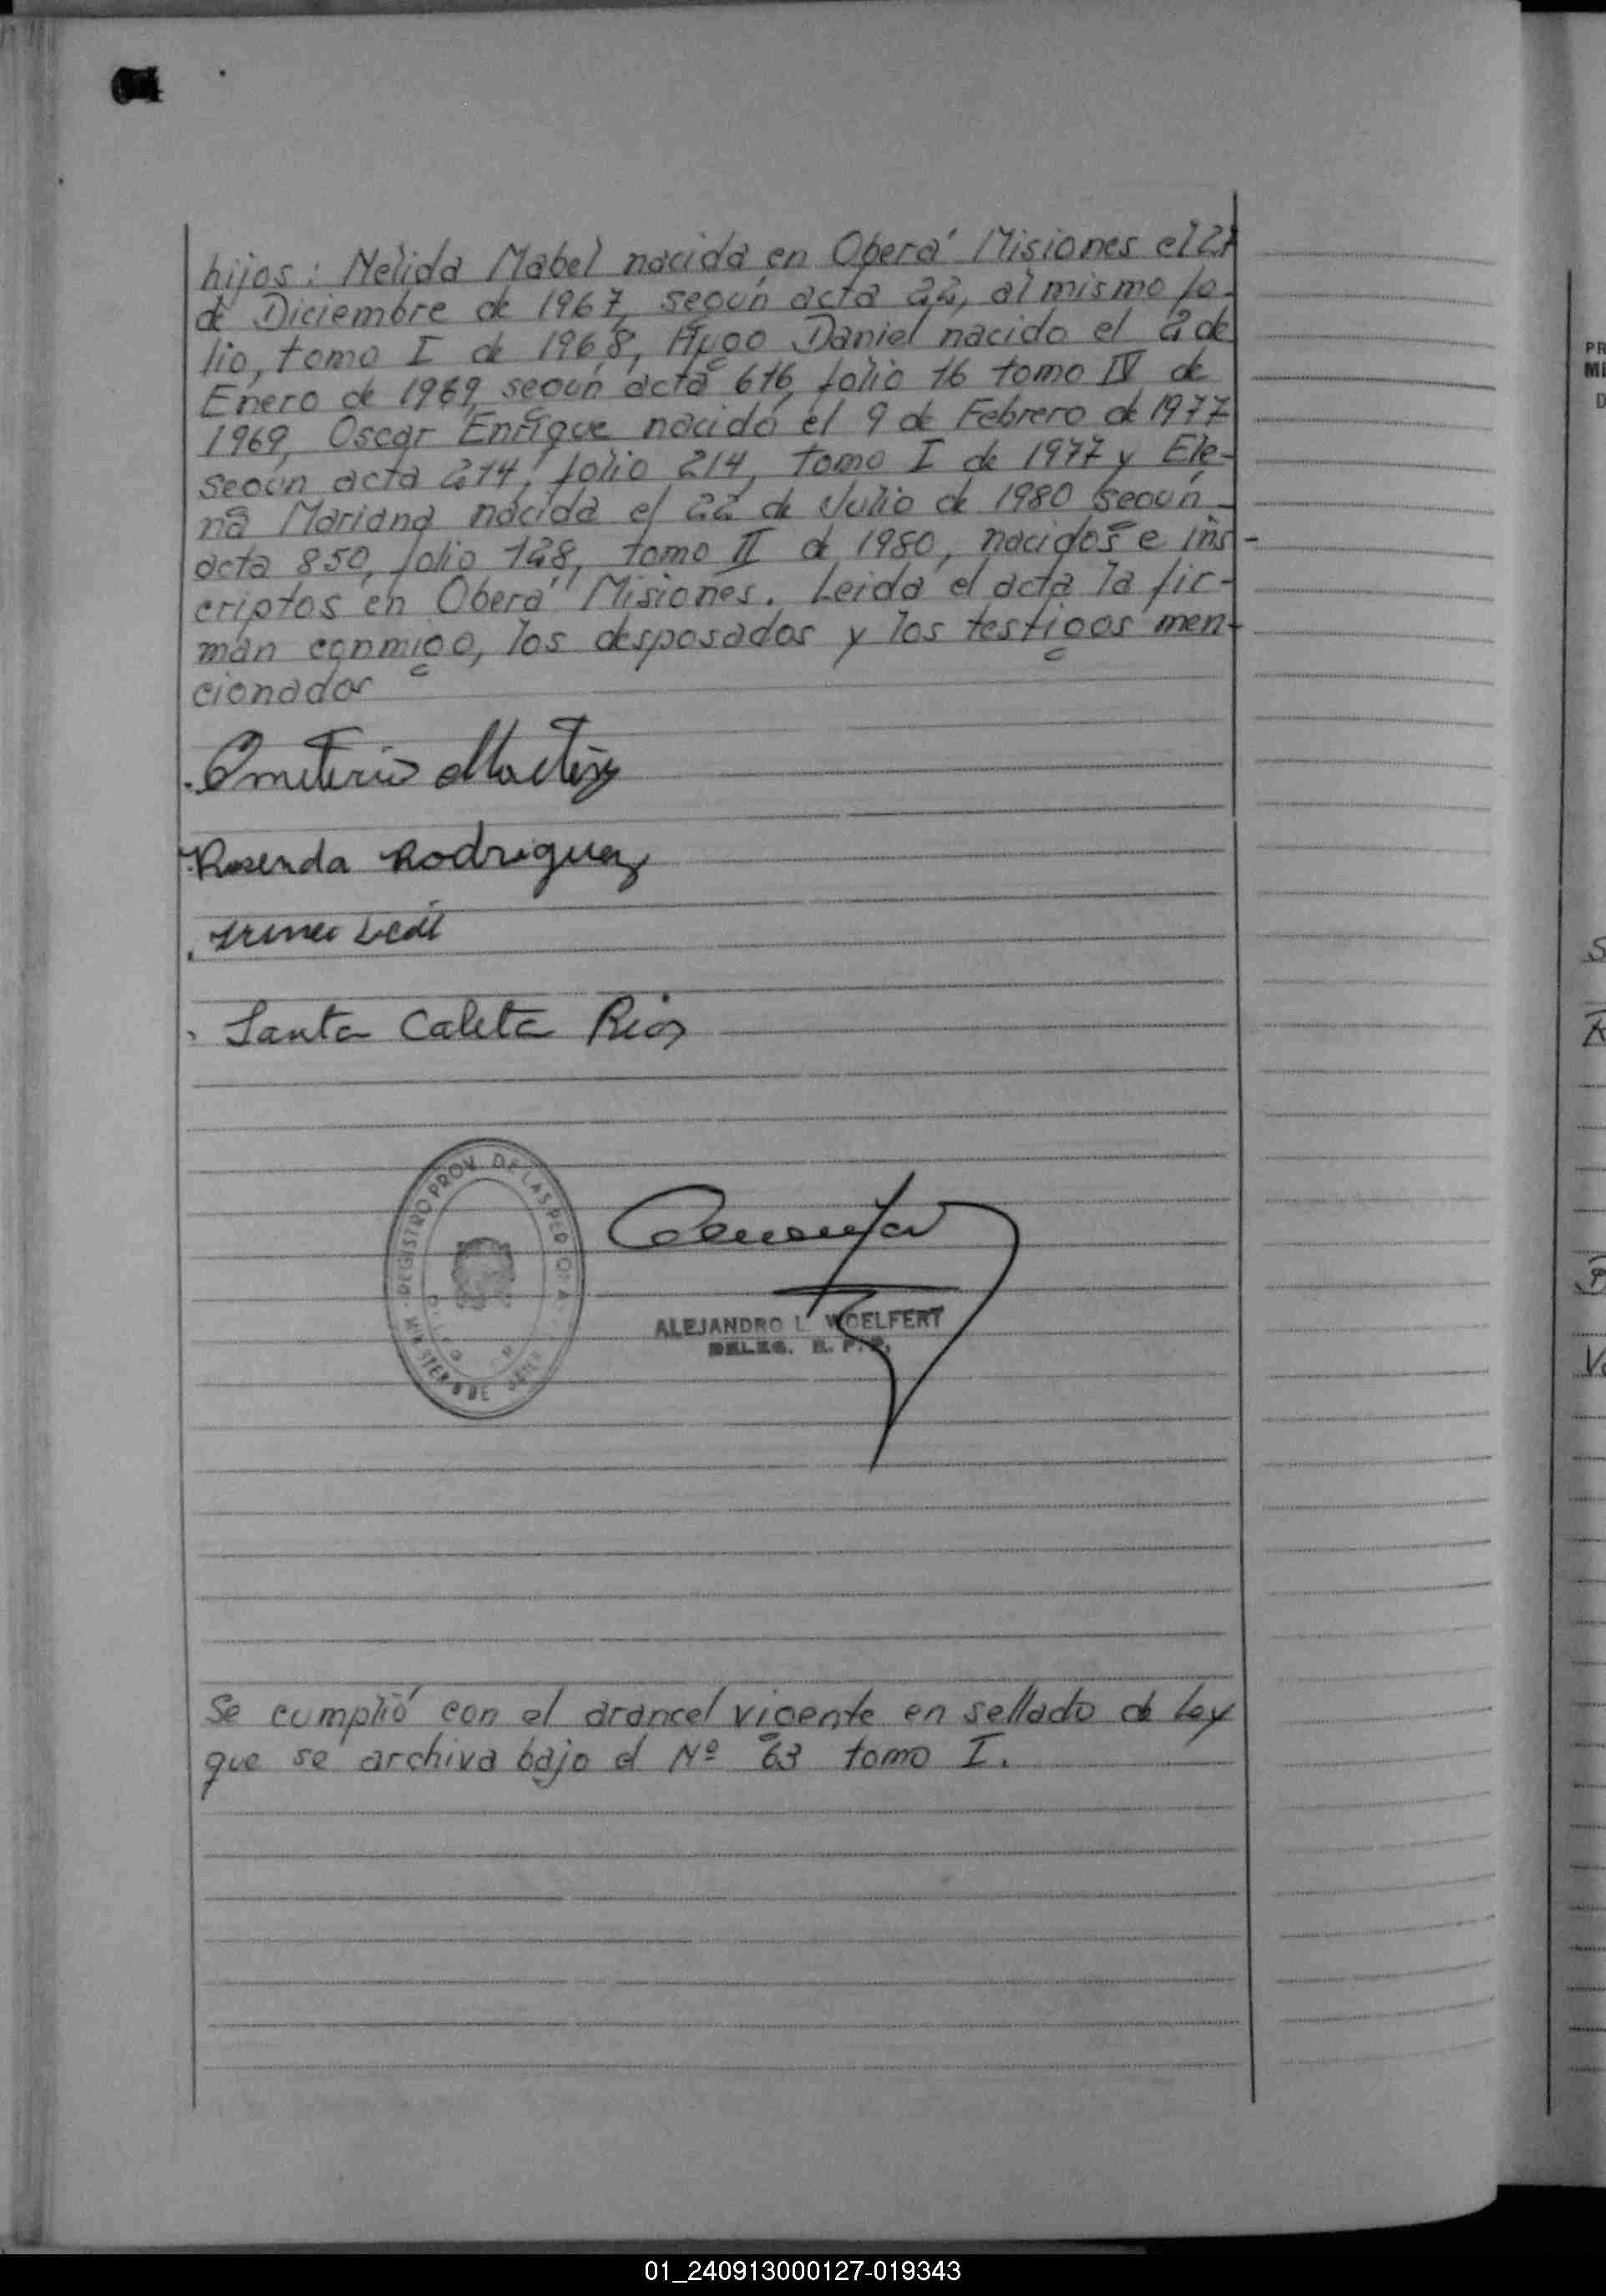 hijos: Nelida Mabel nacida en Oberá Misiones el 27
de Diciembre de 1967, según acta 22, al mismo fo-
lio, tomo I de 1968, Hugo Daniel nacido el 2 de
Enero de 1969, según acta 616, folio 16 tomo IV de
1969, Oscar Enrique nacido el 9 de Febrero de 1977
según acta 214, folio 214, tomo I de 1977 y Ele-
na Mariana nacida el 22 de Julio de 1980 según
acta 850, folio 128, tomo II de 1980, nacidos e ins-
criptos en Oberá Misiones. Leida el acta la fir-
man conmigo, los desposados y los testigos men-
cionados
Rosenda Rodriguez
Santa Caleta Rios
REGISTRO PROV. DE LAS PERSONAS
MINISTERIO DE
ALEJANDRO L. WOELFERT
DELEG. R. P. P.
Se cumplió con el arancel vigente en sellado de Ley
que se archiva bajo el Nº 63 tomo I.
01_240913000127-019343